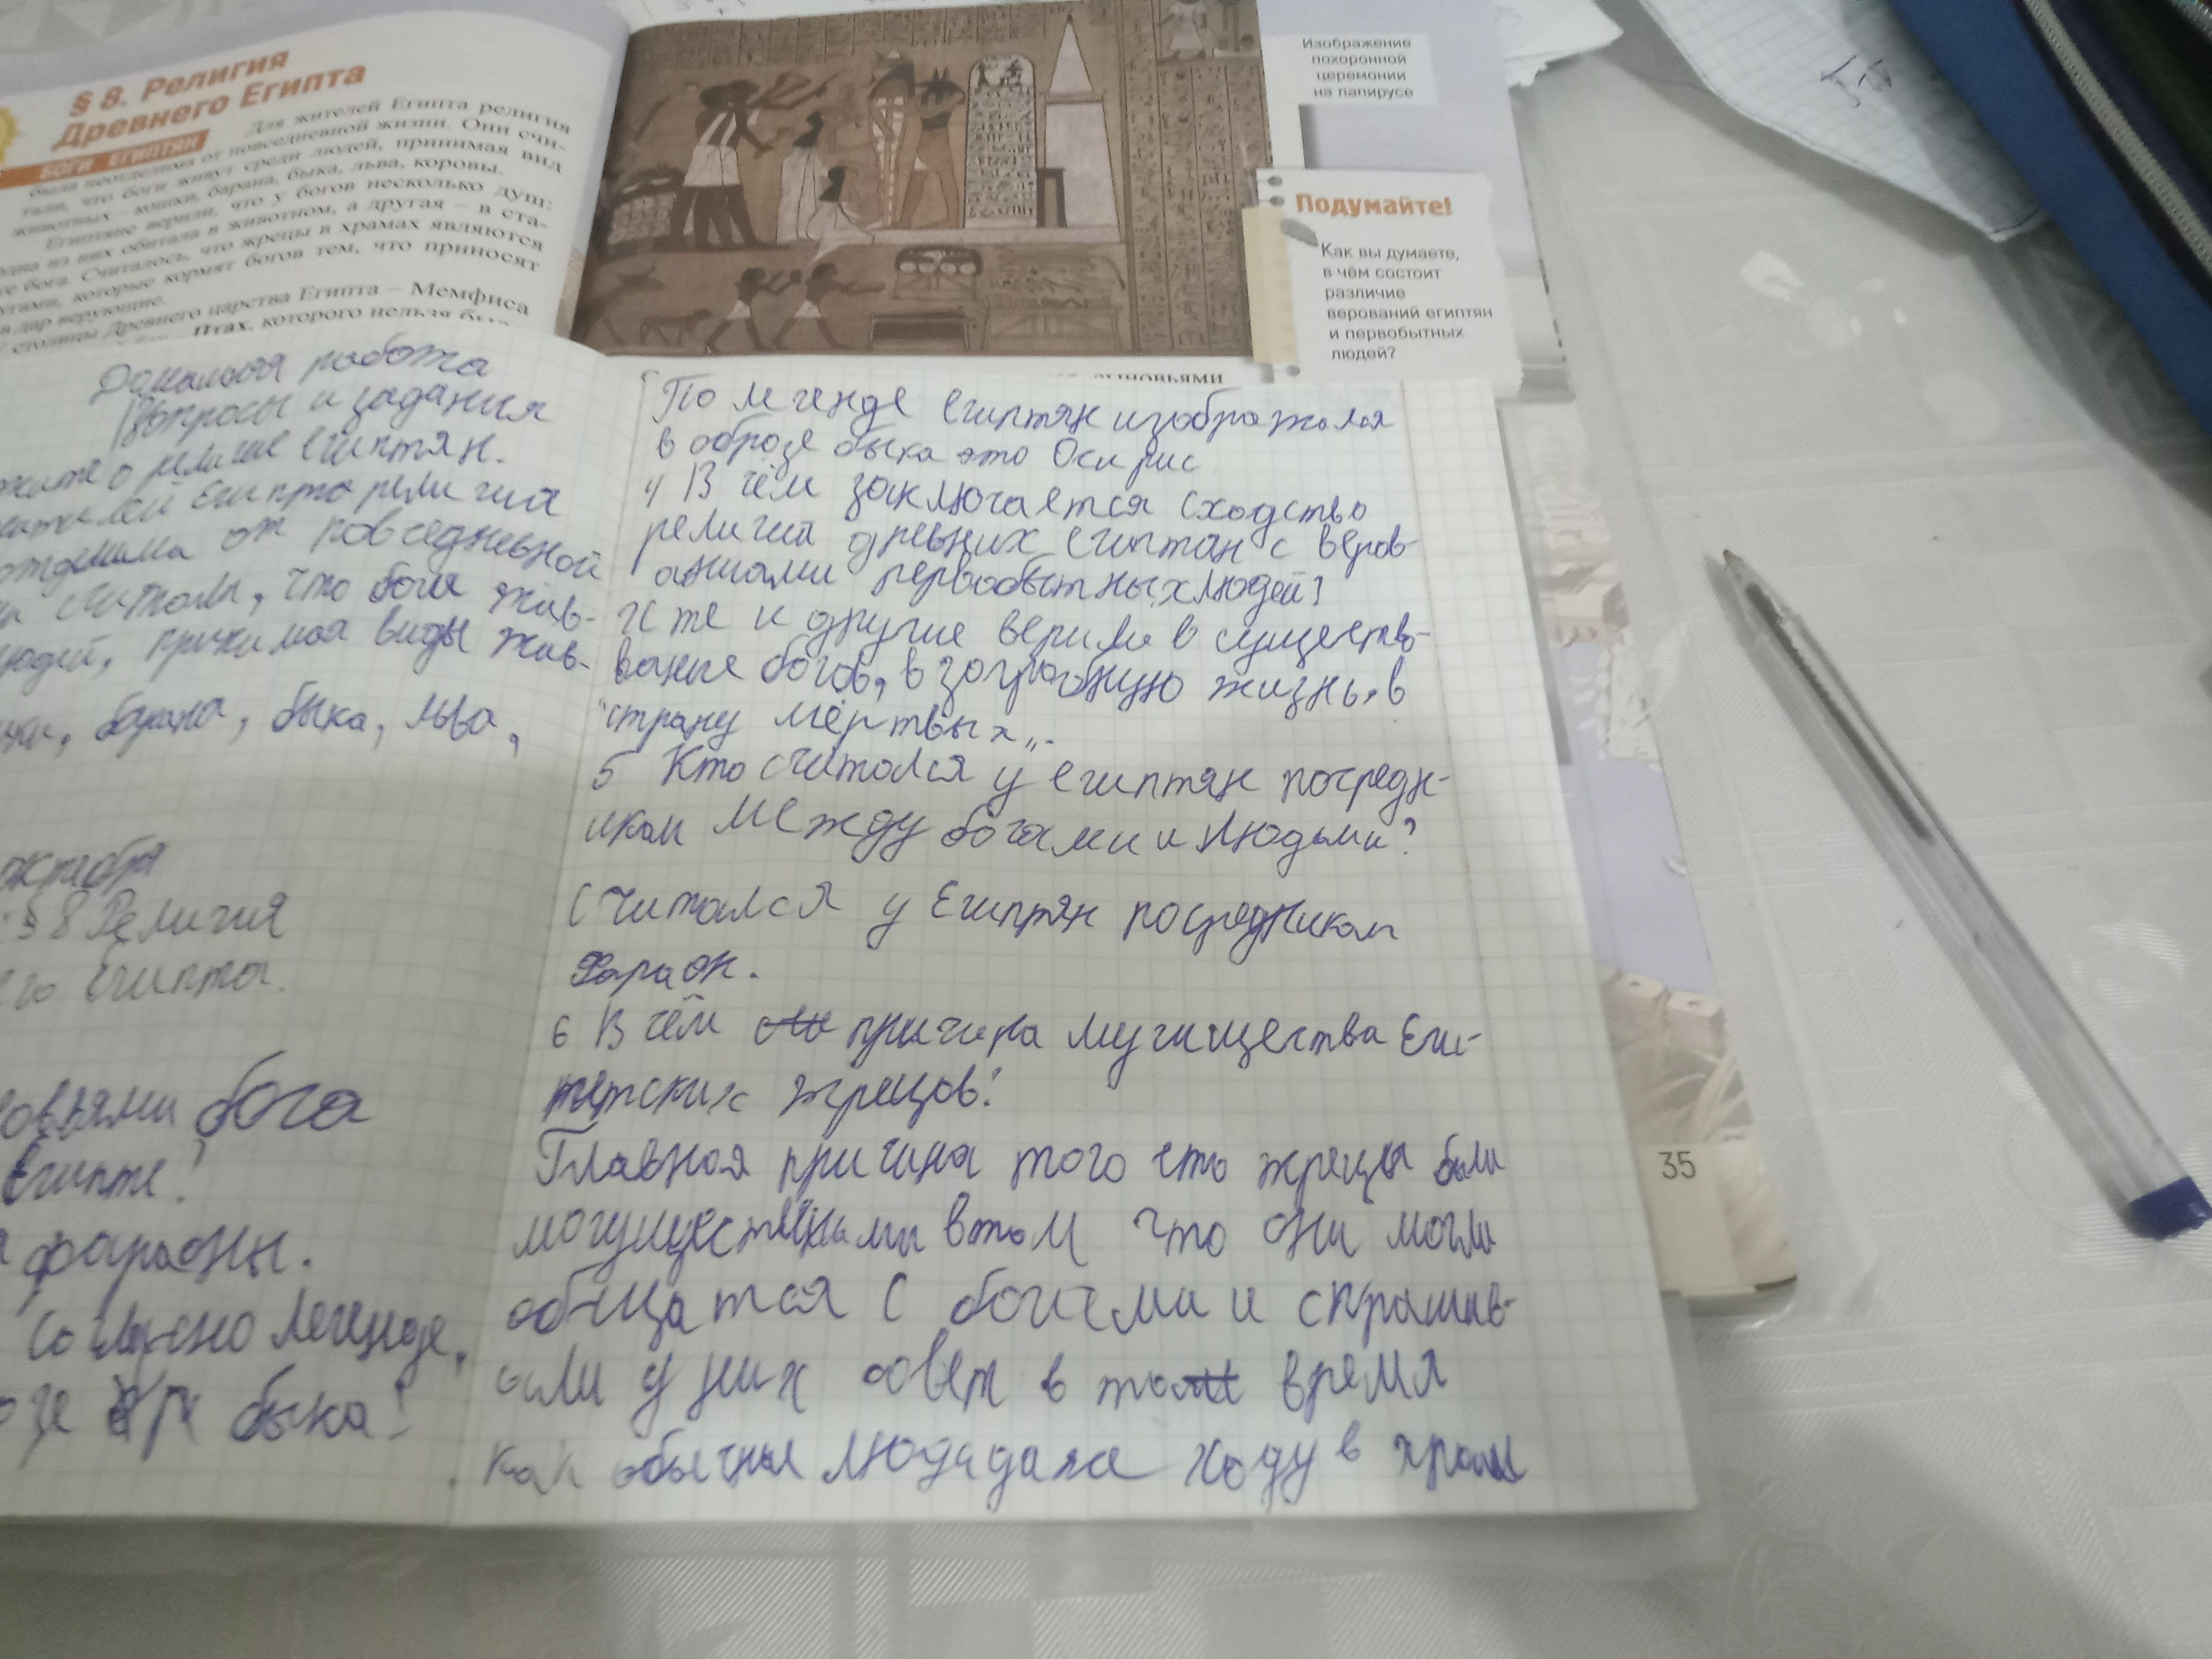 § 8. Религия
Древнего Египта
БОГИ ЕГИПТЯН
Для жителей Египта религия
была неотделима от повседневной жизни. Они счи-
тали, что боги живут среди людей, принимая вид
животных – кошки, барана, быка, льва, коровы.
Египтяне верили, что у богов несколько душ:
одна из них обитала в животном, а другая – в ста-
бога. Считалось, что жрецы в храмах являются
которые кормят богов тем, что приносят
в дар верующие.
столицы Древнего царства Египта – Мемфиса
Птах, которого нельзя
Изображение
похоронной
церемонии
на папирусе
Подумайте!
Как вы думаете,
в чём состоит
различие
верований египтян
и первобытных
людей?
Домашняя работа
Вопросы и задания
о религие египтян.
Египта религия
от повседневной
считали, что боги жив-
людей, принимая виды жив-
барана, быка, льва,
октября
§ 8 Религия
Египта.
бога
Египте?
фараоны.
Согласно легенде,
быка?
По легенде египтян изображался
в оброзе быка это Осирис
4 В чём заключается сходство
религии древних египтян с веров-
аниями первобытных людей?
И те и другие верили в существо-
вание богов, в загробную жизнь, в
"страну мёртвых„.
5 Кто считался у египтян посредн-
иком между богами и людьми?
Считался у Египтян посредником
Фараон.
6 В чём причина могущества Еги-
петских жрецов?
Главная причина того что жрецы были
могуществеными в том что они могли
общатся с богами и спрашив-
али у них совет в то время
как обычные люди даже ходу в храм
35